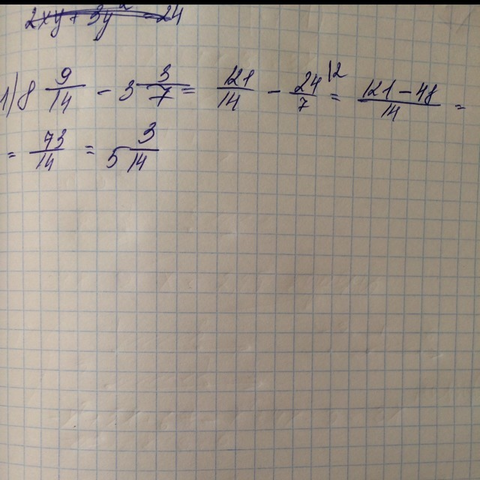 2xy + 3y² = 24
1) 8 9/14 - 3 3/7 = 121/14 - 24/7 |2 = 121-48/14 =
= 73/14 = 5 3/14